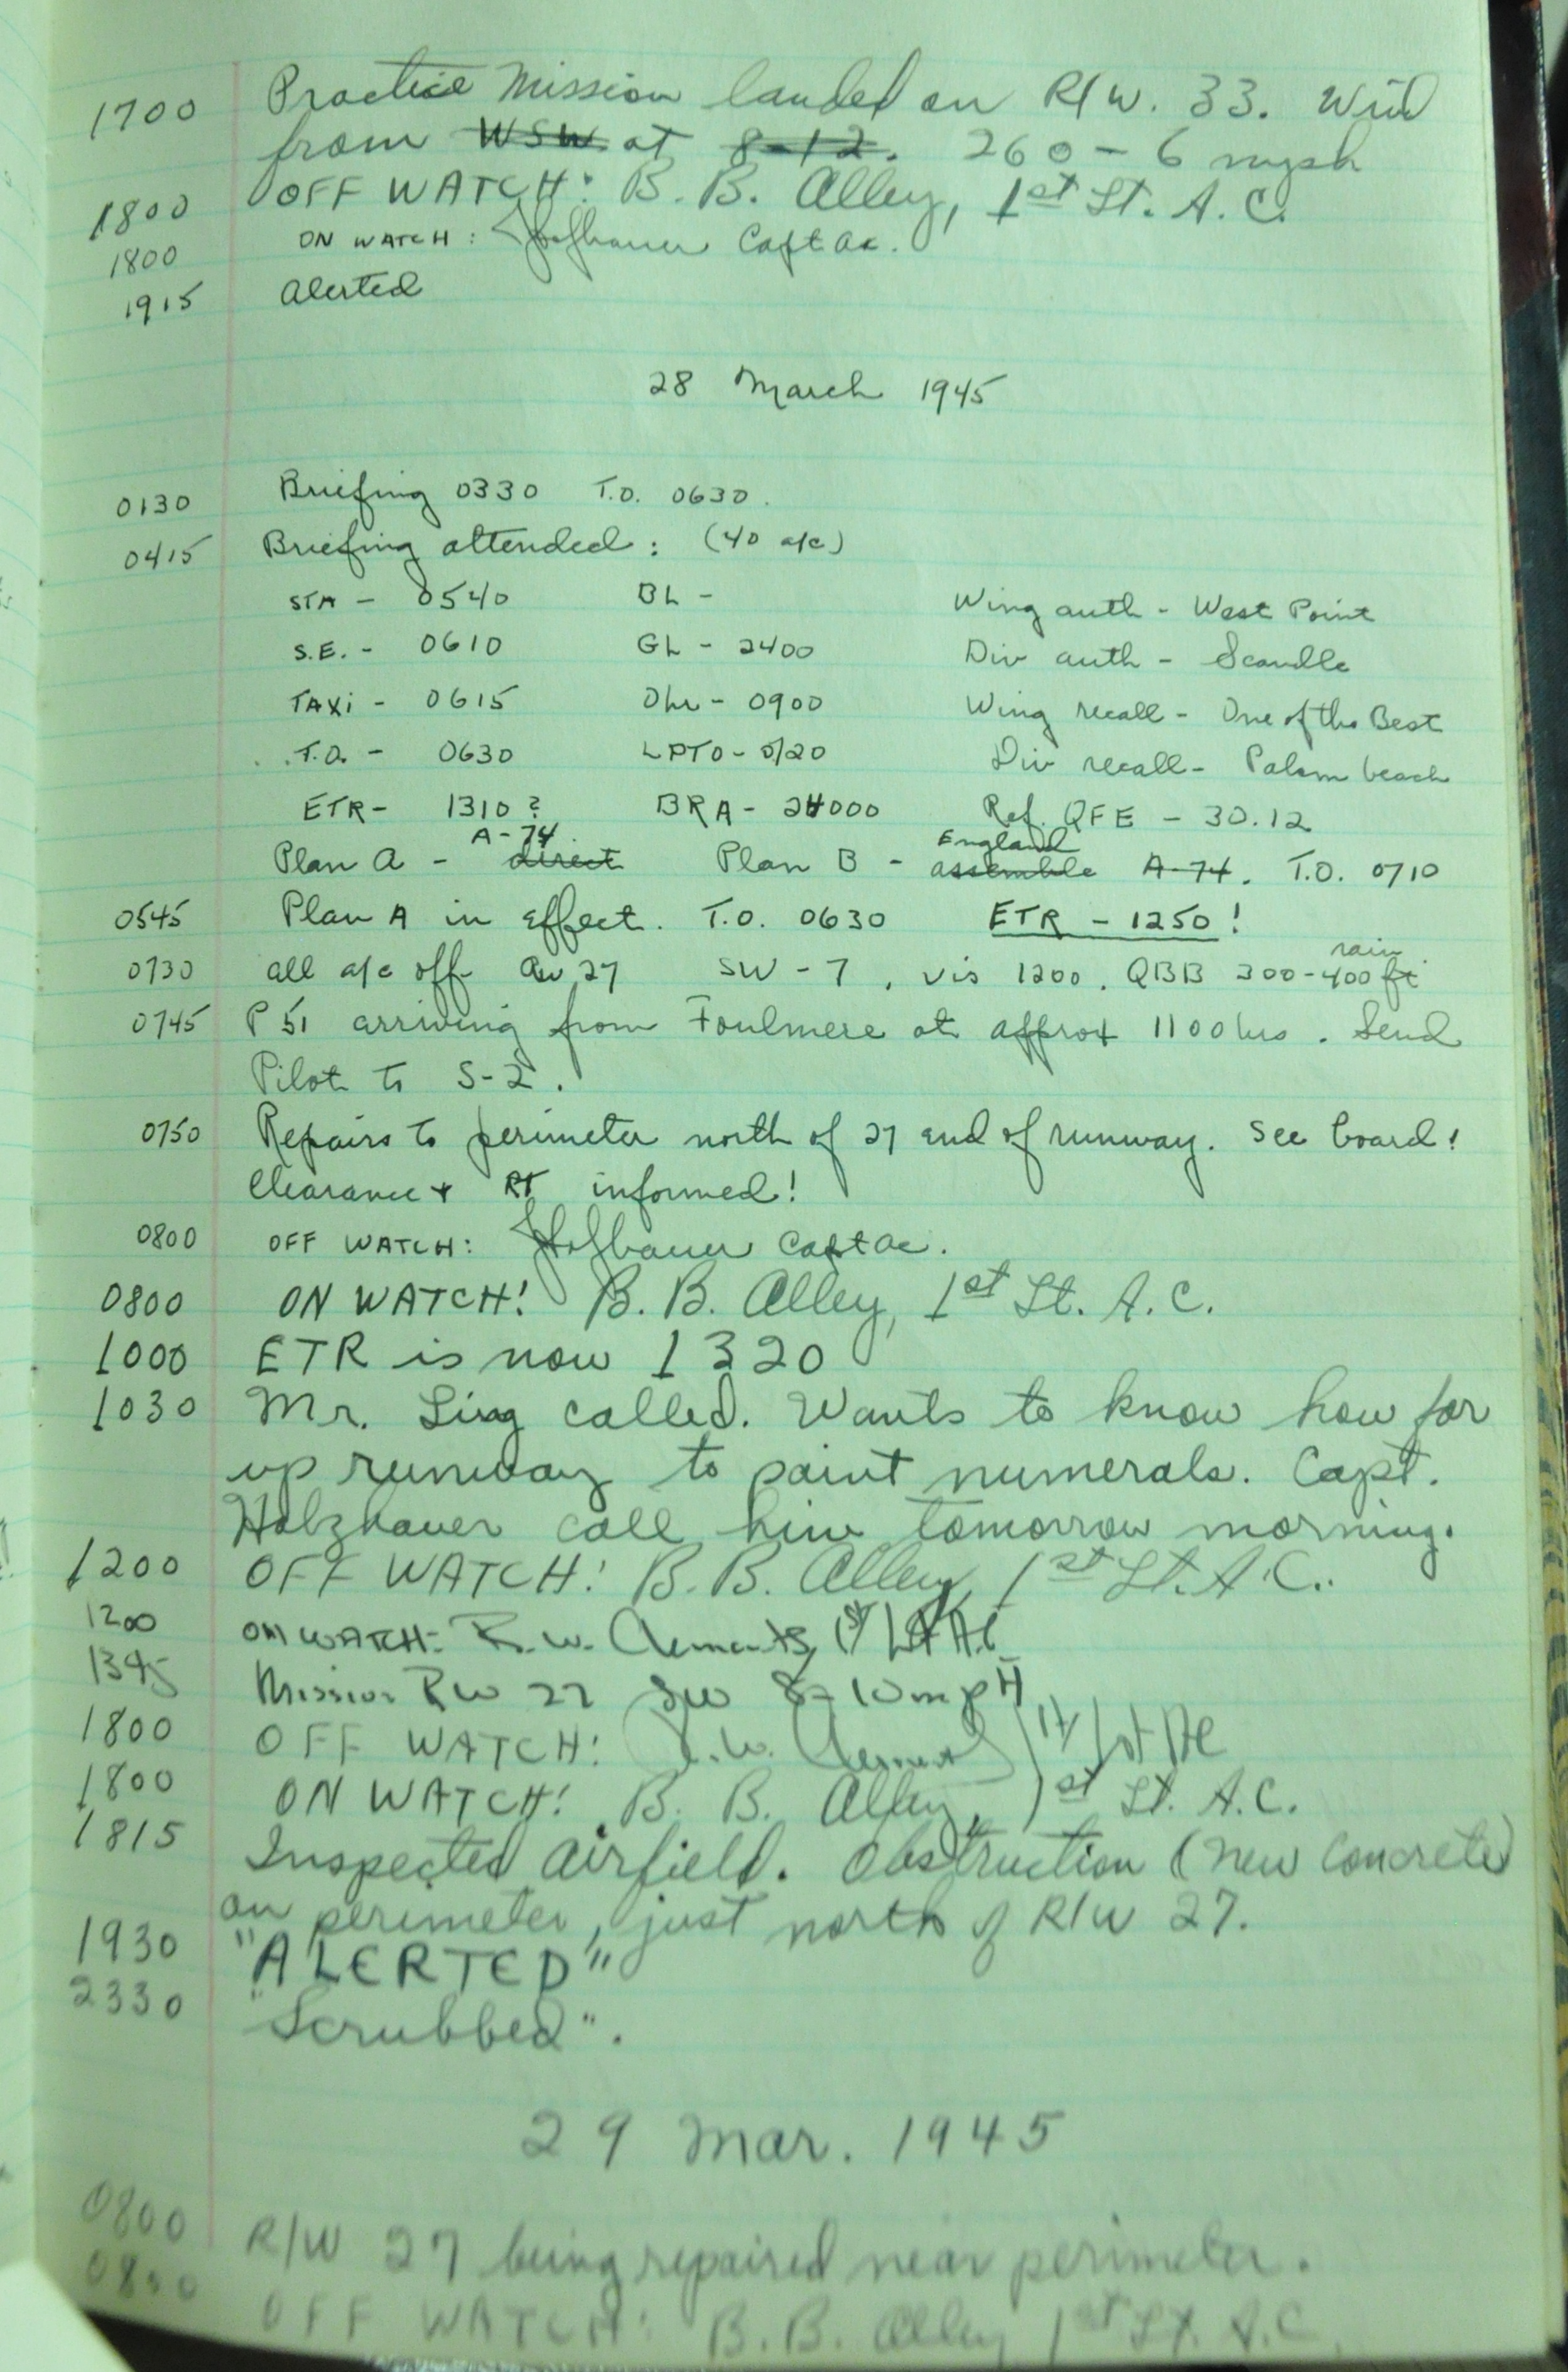 1700 Practice Mission landed on R/W. 33. Wind
from WSW at 8-12. 260 - 6 mph
1800 OFF WATCH: B. B. Alley, 1st Lt. A. C.
1800 ON WATCH: Capt ac.
1915 Alerted
28 March 1945
0130 Briefing 0330 T.O. 0630.
0415 Briefing attended: (40 a/c)
STA - 0540 BL - Wing auth - West Point
S.E. - 0610 GL - 2400 Div auth -
TAXi - 0615 - 0900 Wing recall - One of the Best
T.O. - 0630 LPTO - 0720 Div recall - Palm beach
ETR - 1310? BRA - 24000 Ref. QFE - 30.12
A-74 England
Plan A - direct Plan B - assemble A-74. T.O. 0710
0545 Plan A in effect. T.O. 0630 ETR - 1250!
rain
0730 all a/c off 27 SW - 7, vis 1200. QBB 300-400 ft
0745 P 51 arriving from Foulmere at approx 1100 hrs. Send
Pilot to S-2.
0750 Repairs to perimeter north of 27 end of runway. See board!
Clearance + RT informed!
0800 OFF WATCH: Capt ac.
0800 ON WATCH! B. B. Alley, 1st Lt. A. C.
1000 ETR is now 1320
1030 Mr. called. Wants to know how far
up runway to paint numerals. Capt.
Holzhauer call him tomorrow morning.
1200 OFF WATCH! B. B. Alley, 1st Lt. A. C.
1200 ON WATCH: R. W. Clements, 1st Lt AC
1345 Mission RW 27 SW 8-10 mpH
1800 OFF WATCH! R. W. Clements 1st Lt AC
1800 ON WATCH! B. B. Alley, 1st Lt. A.C.
1815 Inspected airfield. Obstruction (new concrete)
on perimeter, just north of R/W 27.
1930 "ALERTED"
2330 "Scrubbed".
29 Mar. 1945
0800 R/W 27 being repaired near perimeter.
0800 OFF WATCH: B. B. Alley 1st Lt. A.C.